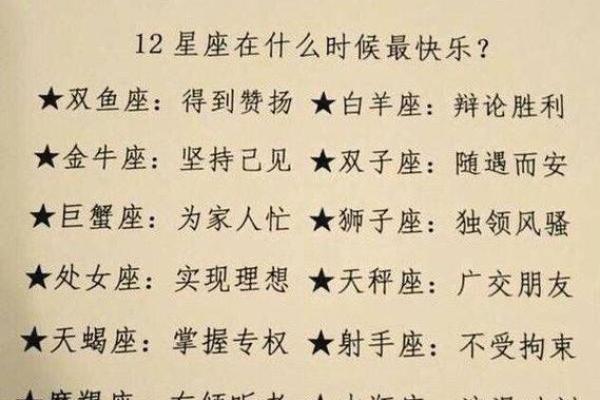 12星座在什么时候最快乐？
★双鱼座：得到赞扬 ★白羊座：辩论胜利
★金牛座：坚持己见 ★双子座：随遇而安
★巨蟹座：为家人忙 ★狮子座：独领风骚
★处女座：实现理想 ★天秤座：广交朋友
★天蝎座：掌握专权 ★射手座：不受拘束